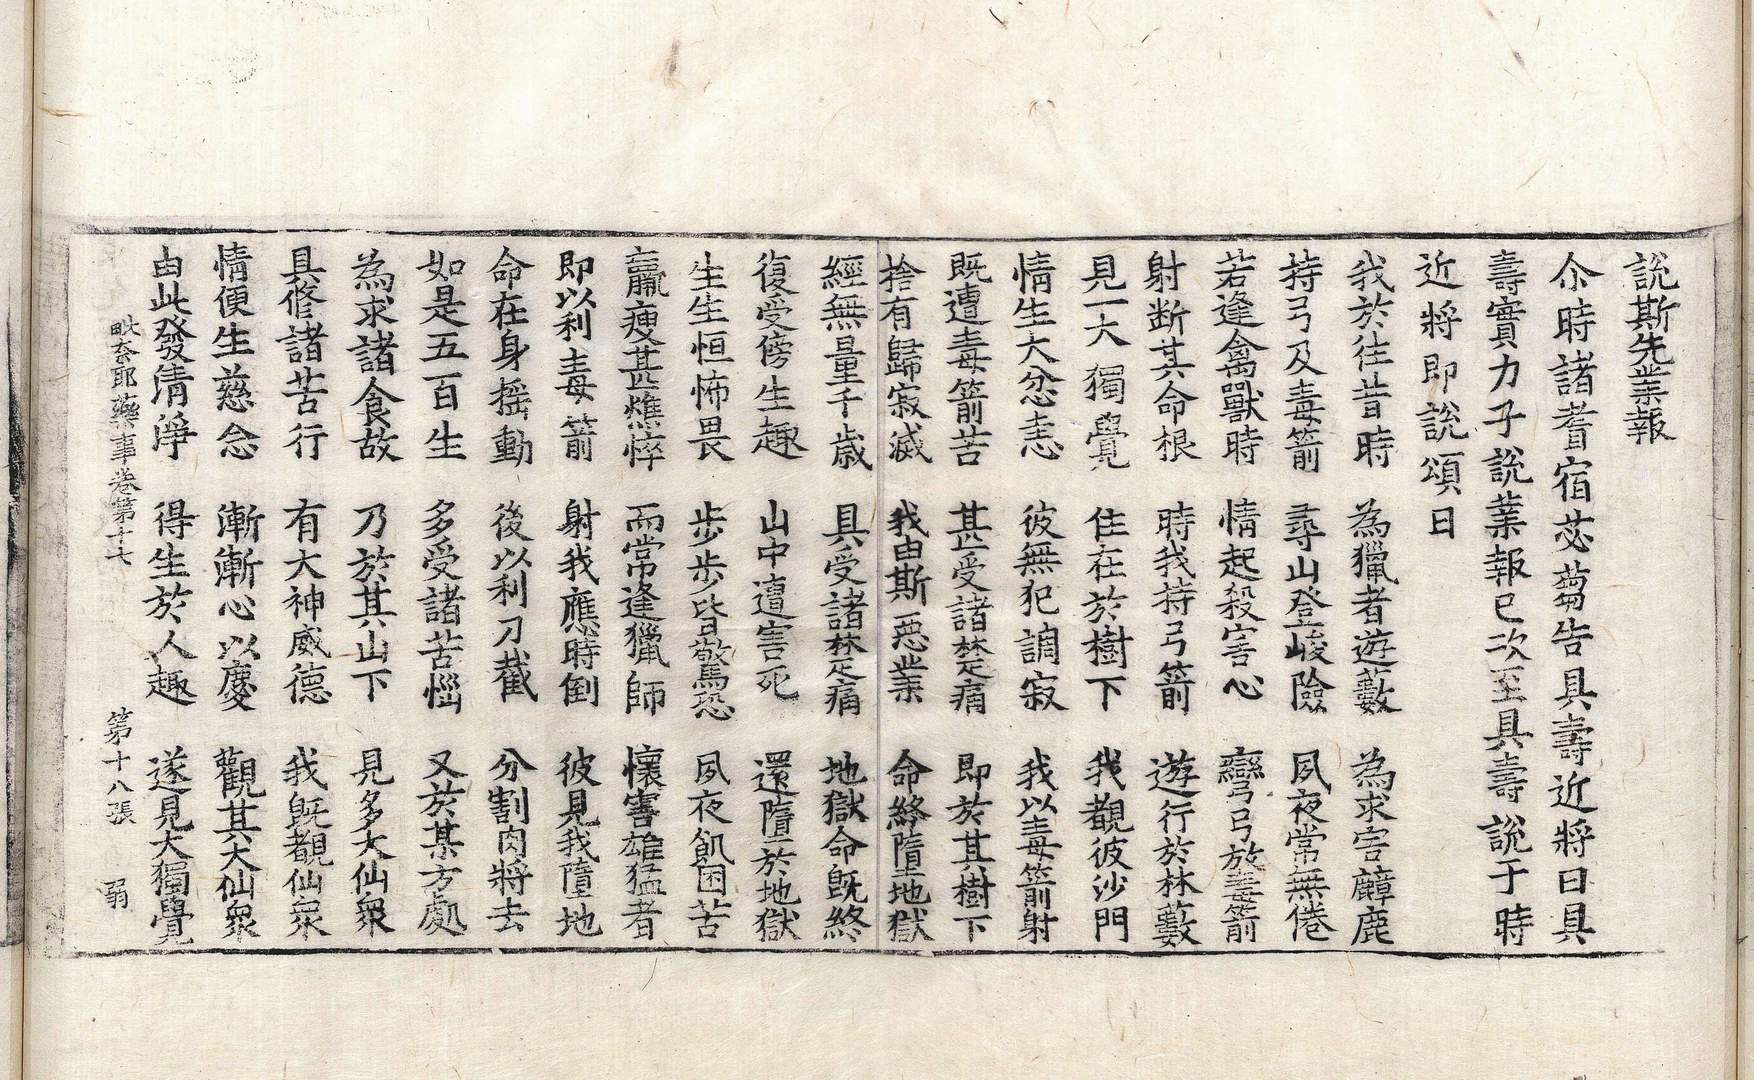 說斯先業報
尒時諸耆宿苾蒭告具壽近將曰具
壽實力子說業報已次至具壽說于時
近將即說頌曰
我於往昔時　為獵者遊藪　為求害麞鹿
持弓及毒箭　尋山登峻險　夙夜常無倦
若逢禽獸時　情起殺害心　彎弓放毒箭
射断其命根　時我持弓箭　遊行於林藪
見一大獨覺　住在於樹下　我觀彼沙門
情生大忿恚　彼無犯調寂　我以毒箭射
既遭毒箭苦　甚受諸楚痛　即於其樹下
捨有歸寂滅　我由斯惡業　命終墮地獄
經無量千歲　具受諸楚痛　地獄命既終
復受傍生趣　山中遭害死　還墮於地獄
生生恒怖畏　步步皆驚恐　夙夜飢困苦
羸瘦甚燋悴　而常逢獵師　懷害雄猛者
即以利毒箭　射我應時倒　彼見我墮地
命在身摇動　後以利刀截　分割肉將去
如是五百生　多受諸苦惱　又於某方處
為求諸食故　乃於其山下　見多大仙衆
具修諸苦行　有大神威德　我既覩仙衆
情便生慈念　漸漸心以慶　觀其大仙衆
由此發清淨　得生於人趣　遂見大獨覺
毗奈耶藥事卷第十七　第十八張　弱